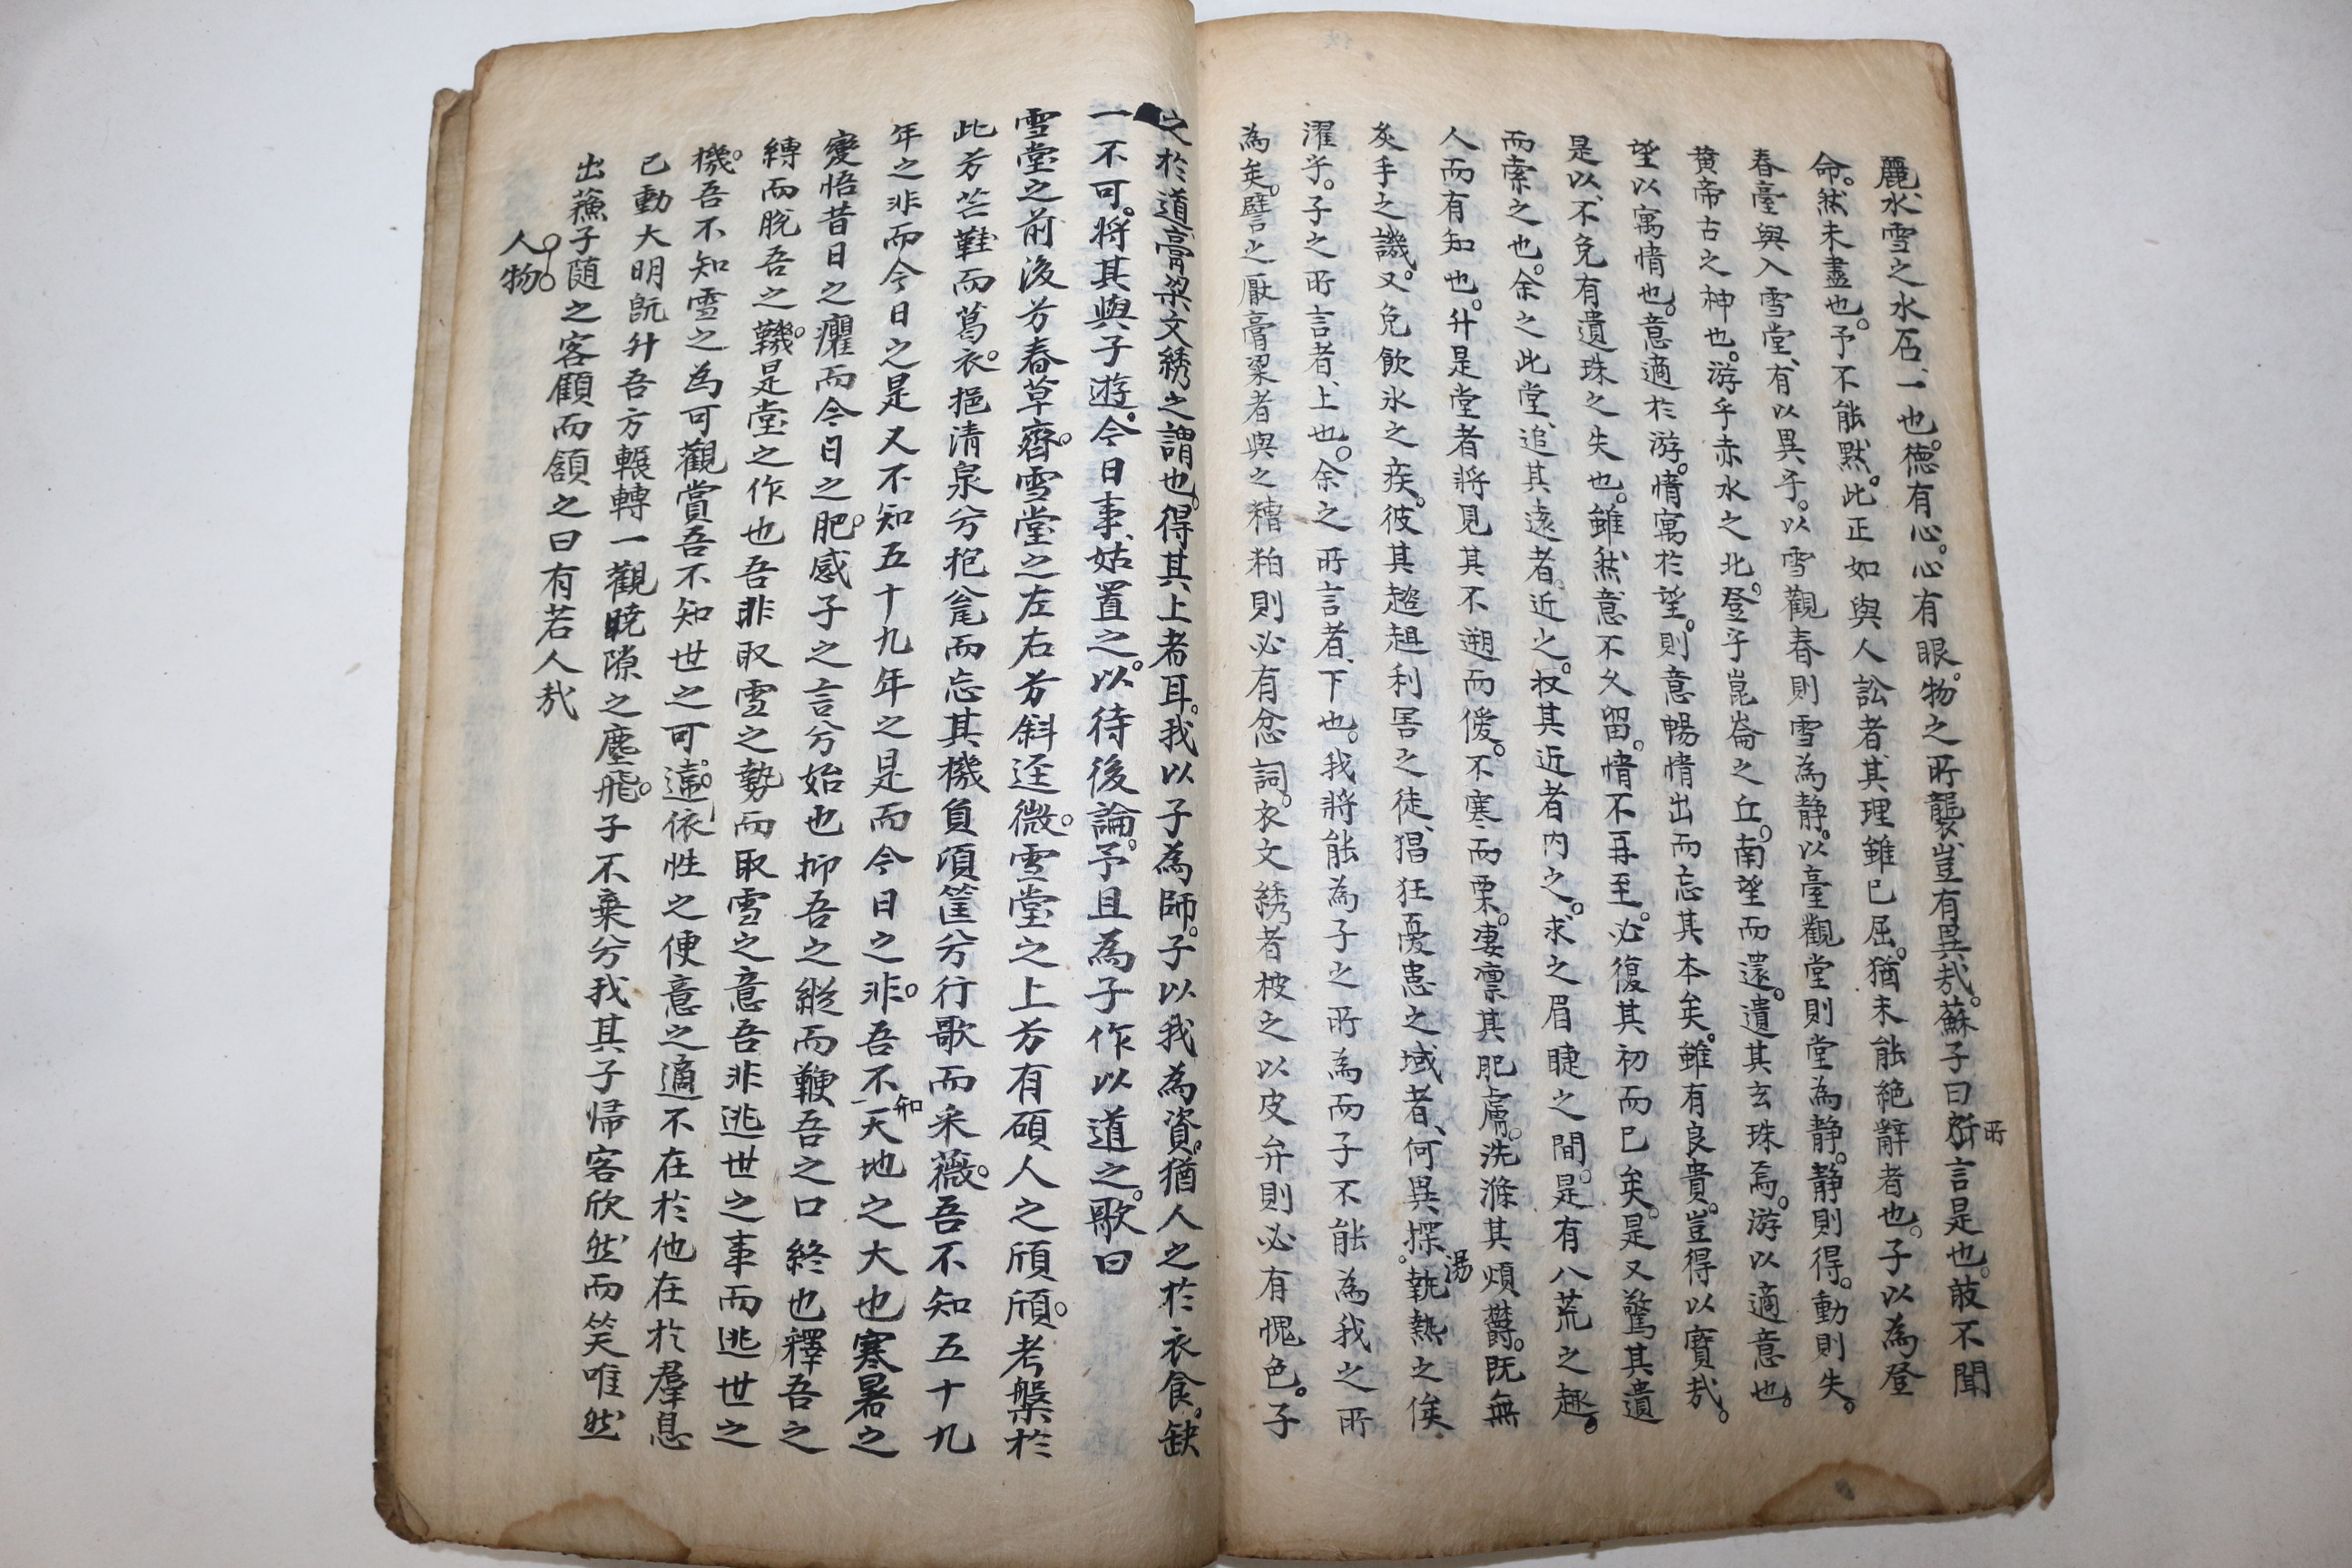 麗水雪之水石、一也。德有心。心有眼。物之所襲、豈有異哉。蘇子曰所言是也。敢不聞
命。然未盡也。予不能默。此正如與人訟者、其理雖已屈。猶未能絶辭者也。子以為登
春臺與入雪堂、有以異乎。以雪觀春則雪為静。以臺觀堂則堂為静。静則得。動則失。
黄帝古之神也。游乎赤水之北。登乎崑崙之丘。南望而還。遺其玄珠焉。游以適意也。
望以寓情也。意適於游。情寓於望。則意暢情出而忘其本矣。雖有良貴。豈得以寶哉。
是以不免有遺珠之失也。雖然、意不久留。情不再至。必復其初而已矣。是又驚其遺
而索之也。余之此堂、追其遠者。近之。收其近者内之。求之眉睫之間。是有八荒之趣。
人而有知也。升是堂者將見其不遡而僾。不寒而栗。凄凛其肥膚。洗滌其煩鬱。既無
炙手之譏。又免飲氷之疾。彼其趑趄利害之徒、猖狂憂患之域者、何異探湯執熱之俟
濯乎。子之所言者、上也。余之所言者、下也。我將能為子之所為而子不能為我之所
為矣。譬之厭膏粱者與之糟粕則必有忿詞。衣文綉者被之以皮弁則必有愧色。子
之於道膏粱文綉之謂也。得其上者耳。我以子為師。子以我為資。猶人之於衣食。缺
一不可。將其與子遊。今日事、姑置之。以待後論。予且為子作以道之。歌曰
雪堂之前後兮春草齊。雪堂之左右兮斜逕微。雪堂之上兮有碩人之頎頎。考槃於
此兮芒鞋而葛衣。挹清泉兮抱瓮而忘其機負頃筐兮行歌而采薇。吾不知五十九
年之非而今日之是又不知五十九年之是而今日之非。吾不知天地之大也寒暑之
變悟昔日之癯而今日之肥。感子之言兮始也抑吾之縱而鞭吾之口終也釋吾之
縛而脱吾之鞿。是堂之作也吾非取雪之勢而取雪之意吾非逃世之事而逃世之
機。吾不知雪之為可觀賞吾不知世之可違。依性之便意之適不在於他在於羣息
已動大明既升吾方輾轉一觀曉隙之塵飛。子不棄兮我其子帰客欣然而笑唯然
出蘓子随之客顧而頷之曰有若人哉
人物